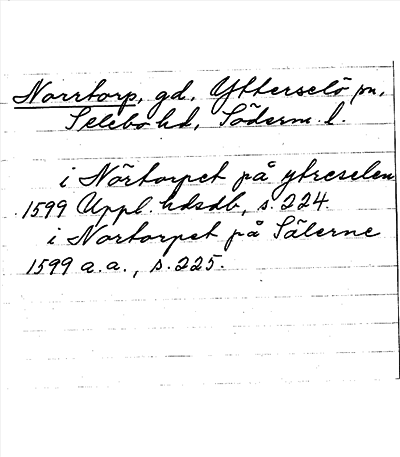 Norrtorp, gd, Ytterselö sn,
Selebo hd, Söderm. l.
i Nörtorpet på ytreselen
1599 Uppl. hdsdb, s. 224.
i Nortorpet på Sälerne
1599 a.a., s. 225.